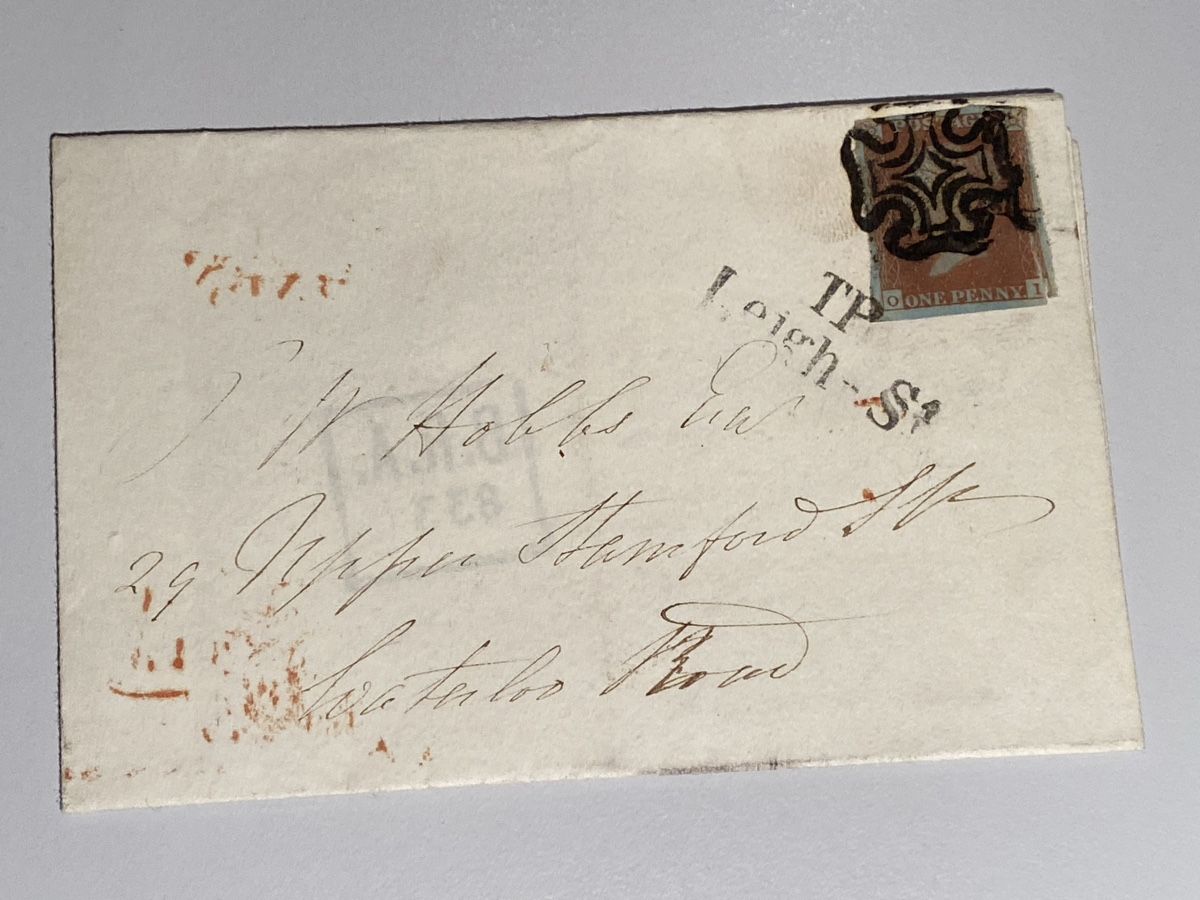 POSTAGE
O ONE PENNY I
TP
Leigh-St
J W Hobbs Esq
29 Upper Stamford St
Waterloo Road